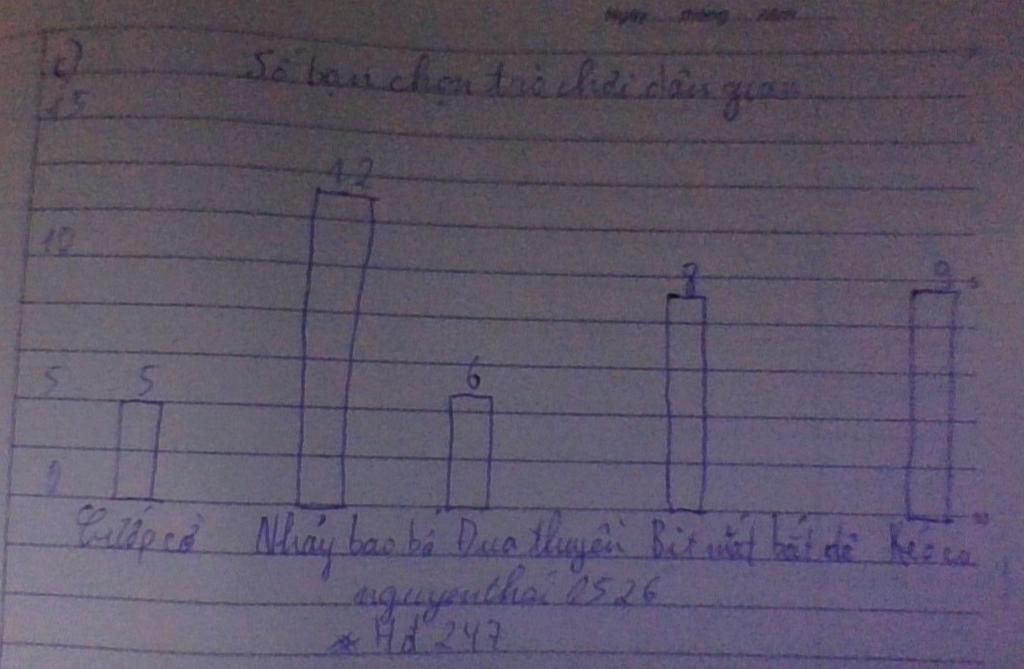 Ngày tháng năm
c) Số bạn chọn trò chơi dân gian
15
12
10
8 9
5 5 6
0
Cướp cờ Nhảy bao bố Đua thuyền Bịt mắt bắt dê Kéo co
nguyenthai 0526
* Hđ 247